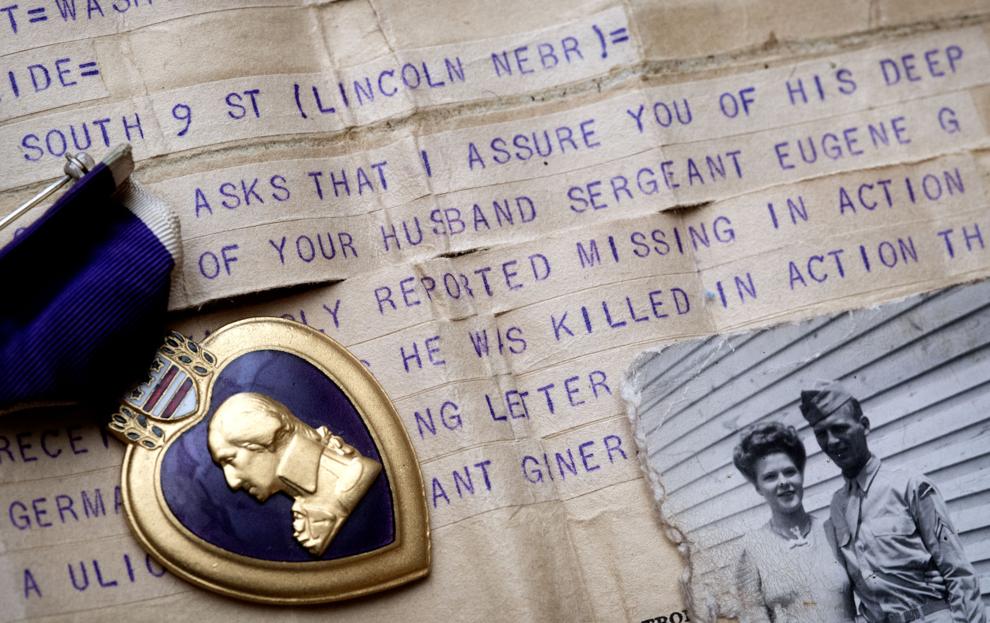 T=WASH
IDE=
SOUTH 9 ST (LINCOLN NEBR)=
ASKS THAT I ASSURE YOU OF HIS DEEP
OF YOUR HUSBAND SERGEANT EUGENE G
LY REPORTED MISSING IN ACTION
HE WAS KILLED IN ACTION TH
NG LETTER
RECE
GERMA ANT GINER
A ULIO